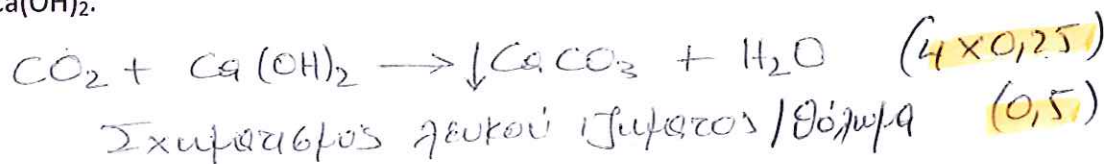 Ca(OH)₂.
CO₂ + Ca(OH)₂ → ↓CaCO₃ + H₂O (4×0,25)
Σχηματισμός λευκού ιζήματος/θόλωμα (0,5)